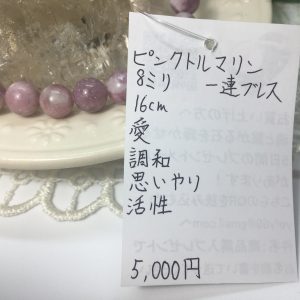 ピンクトルマリン
8ミリ 一連ブレス
16cm
愛
調和
思いやり
活性
5,000円